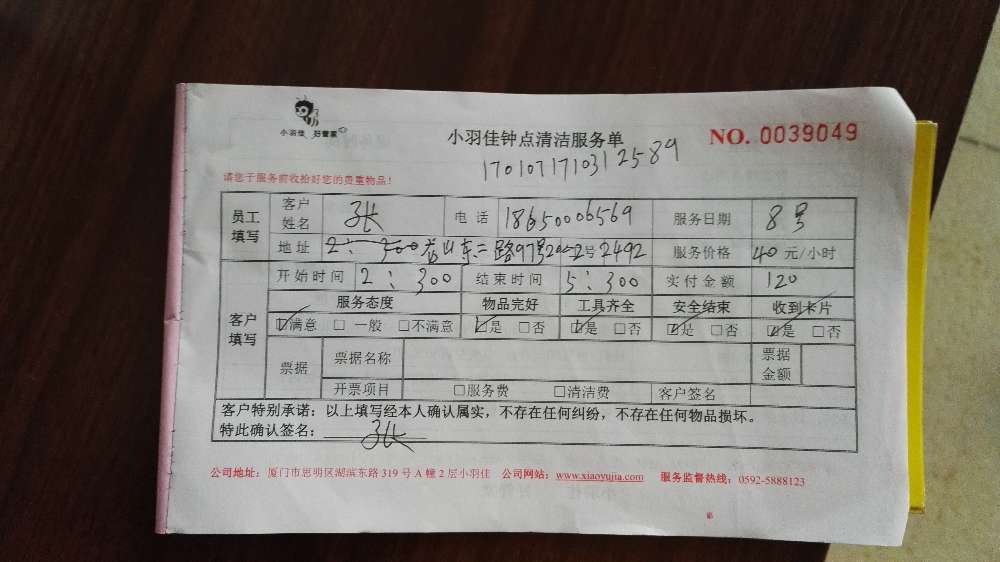 小羽佳 好管家
小羽佳钟点清洁服务单
NO. 0039049
170107171031 2589
请您于服务前收拾好您的贵重物品!
员工填写 客户姓名 张 电话 18650006569 服务日期 8号
地址 龙山东二路97号 2492 服务价格 40 元/小时
客户填写 开始时间 2:300 结束时间 5:300 实付金额 120
服务态度 物品完好 工具齐全 安全结束 收到卡片
☑满意 □ 一般 □不满意 ☑是 □否 ☑是 □否 ☑是 □否 ☑是 □否
票据 票据名称 票据金额
开票项目 □服务费 □清洁费 客户签名
客户特别承诺:以上填写经本人确认属实,不存在任何纠纷,不存在任何物品损坏。
特此确认签名: 张
公司地址:厦门市思明区湖滨东路 319 号 A 幢 2 层小羽佳 公司网站:www.xiaoyujia.com 服务监督热线:0592-5888123